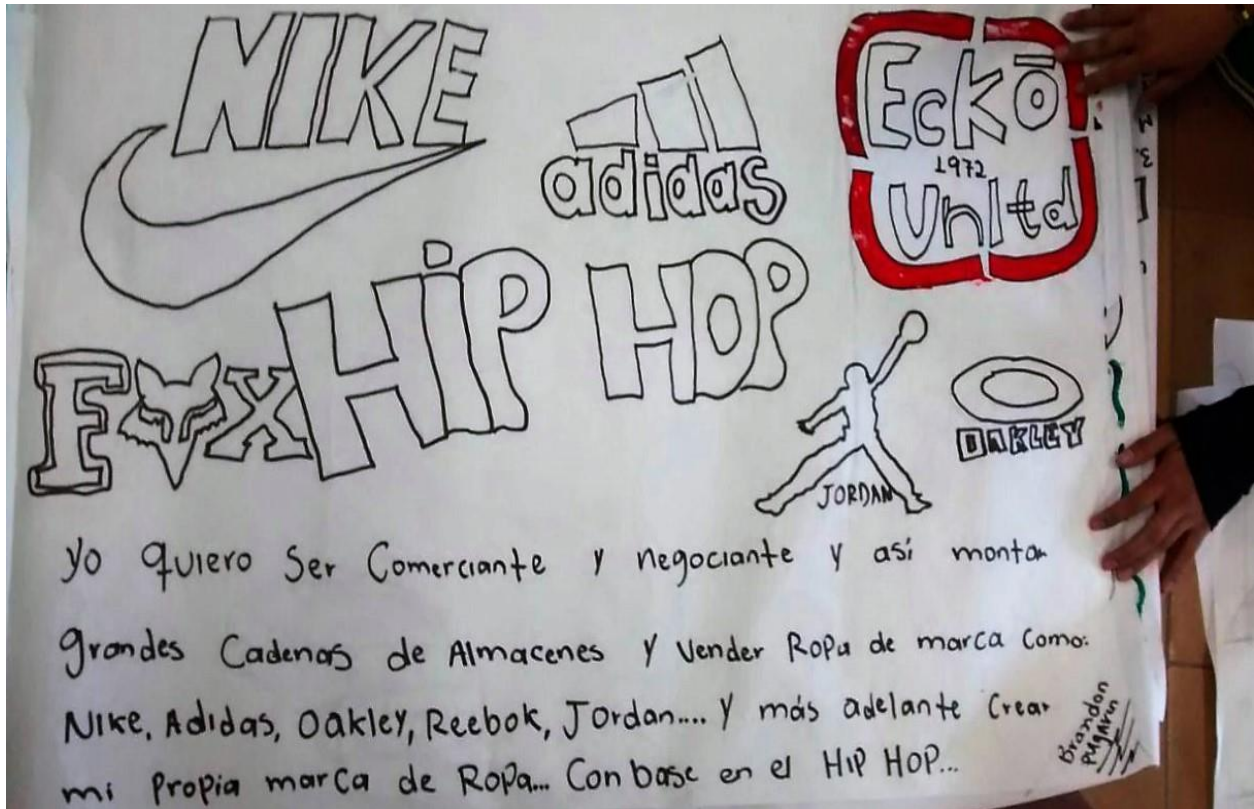 NIKE
adidas
Ecko
1972
Unltd
HiP HOP
FOX
JORDAN
OAKLEY
yo quiero Ser Comerciante y negociante y así montar
grandes Cadenas de Almacenes y Vender Ropa de marca Como:
Nike, Adidas, Oakley, Reebok, Jordan.... y más adelante Crear
mi Propia marca de Ropa... Con base en el HIP HOP...
Brandon